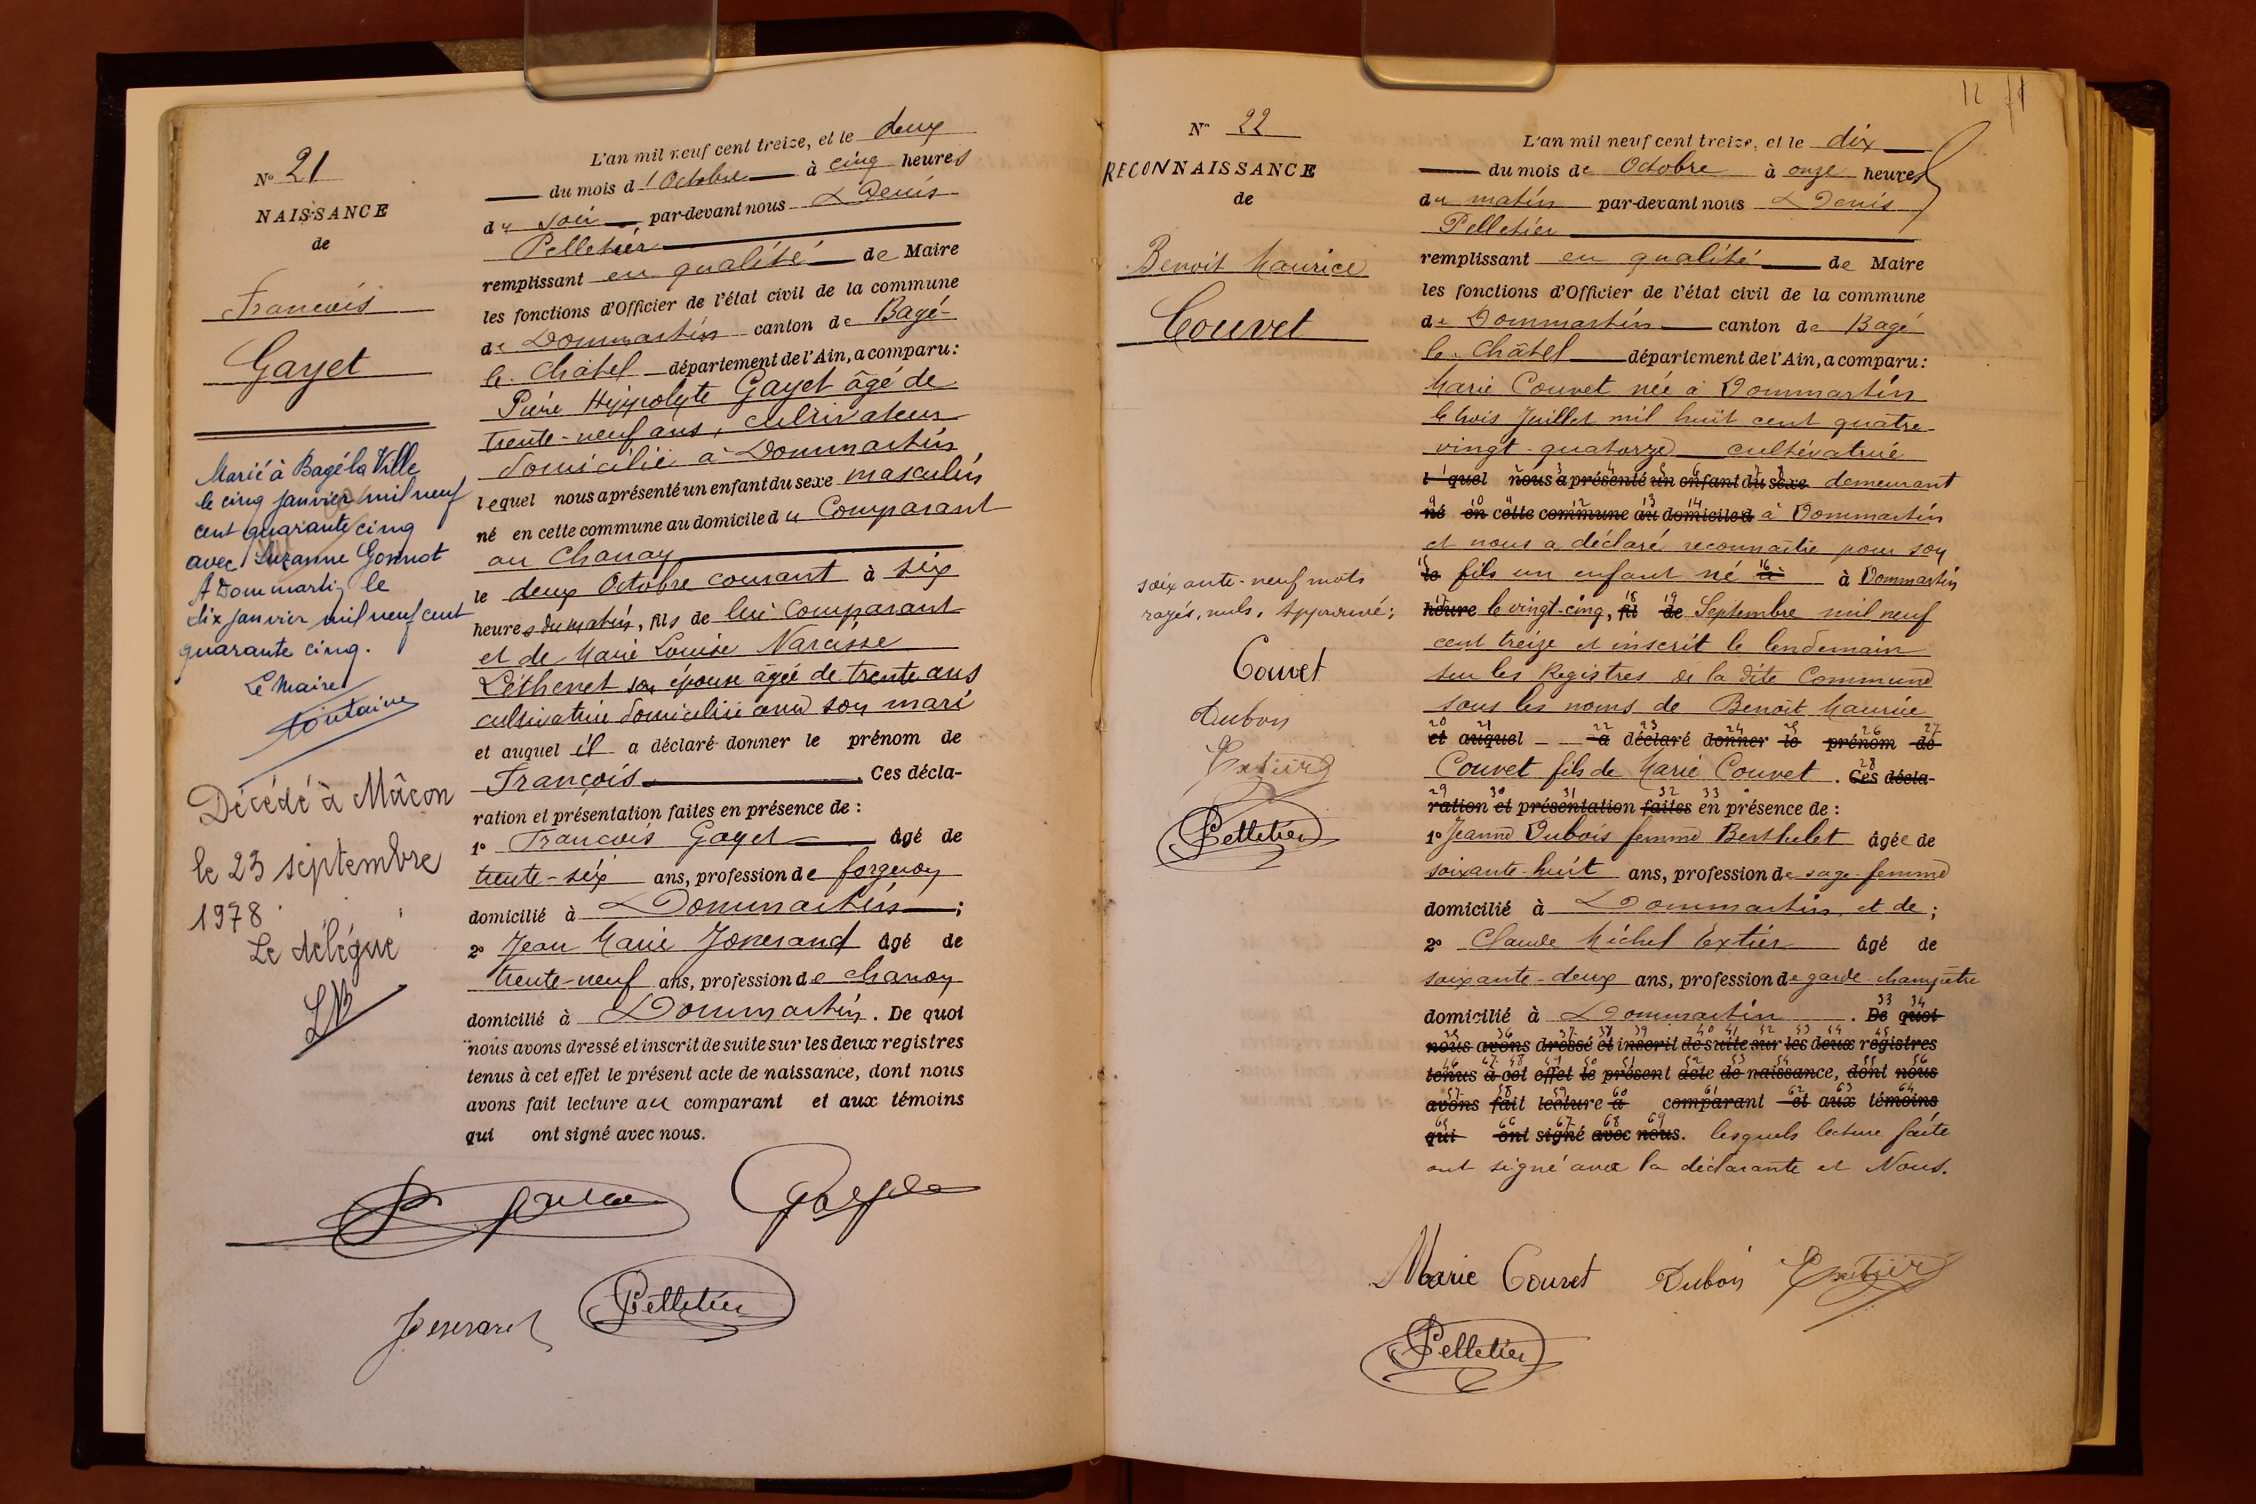 No 21
NAISSANCE
de
François
Gayet
Marié à Bagé la Ville
le cinq janvier mil neuf
cent quarante cinq
avec Suzanne Gonnot
A Dommartin le
dix janvier mil neuf cent
quarante cinq.
Le Maire
Fontaine
Décédé à Mâcon
le 23 septembre
1978
Le délégué
L'an mil neuf cent treize, et le deux
du mois d'Octobre à cinq heures
du soir par-devant nous Denis
Pelletier
remplissant en qualité de Maire
les fonctions d'Officier de l'état civil de la commune
de Dommartin canton de Bagé-
le-Châtel département de l'Ain, a comparu:
Pierre Hyppolyte Gayet âgé de
trente-neuf ans, cultivateur
domicilié à Dommartin
lequel nous a présenté un enfant du sexe masculin
né en cette commune au domicile du Comparant
au Chanay
le deux Octobre courant à six
heures du matin, fils de lui Comparant
et de Marie Louise Narcisse
Léthenet son épouse âgée de trente ans
cultivatrice domiciliée avec son mari
et auquel il a déclaré donner le prénom de
François. Ces décla-
ration et présentation faites en présence de :
1o François Gayet âgé de
trente-six ans, profession de forgeron
domicilié à Dommartin ;
2o Jean Marie Joserand âgé de
trente-neuf ans, profession de charron
domicilié à Dommartin. De quoi
nous avons dressé et inscrit de suite sur les deux registres
tenus à cet effet le présent acte de naissance, dont nous
avons fait lecture au comparant et aux témoins
qui ont signé avec nous.
Pelletier
12
No 22
RECONNAISSANCE
de
Benoit Maurice
Couvet
soixante-neuf mots
rayés, nuls. Approuvé;
Couvet
Dubois
Extier
Pelletier
L'an mil neuf cent treize, et le dix
du mois de Octobre à onze heures
du matin par-devant nous Denis
Pelletier
remplissant en qualité de Maire
les fonctions d'Officier de l'état civil de la commune
de Dommartin canton de Bagé
le-Châtel département de l'Ain, a comparu:
Marie Couvet née à Dommartin
le trois Juillet mil huit cent quatre-
vingt-quatorze cultivatrice
lequel nous a présenté un enfant du sexe demeurant
né en cette commune au domicile d à Dommartin
et nous a déclaré reconnaître pour son
le fils un enfant né à à Dommartin
heure le vingt-cinq, fil de Septembre mil neuf
cent treize et inscrit le lendemain
sur les Registres de la dite Commune
sous les noms de Benoit Maurice
et auquel a déclaré donner le prénom de
Couvet fils de Marie Couvet. Ces décla-
ration et présentation faites en présence de :
1o Jeanne Dubois femme Berthelet âgée de
soixante-huit ans, profession de sage-femme
domicilié à Dommartin et de ;
2o Claude Michel Extier âgé de
soixante-deux ans, profession de garde-champêtre
domicilié à Dommartin. De quoi
nous avons dressé et inscrit de suite sur les deux registres
tenus à cet effet le présent acte de naissance, dont nous
avons fait lecture a comparant et aux témoins
qui ont signé avec nous. lesquels lecture faite
ont signé avec la déclarante et Nous.
Marie Couvet Dubois Extier
Pelletier